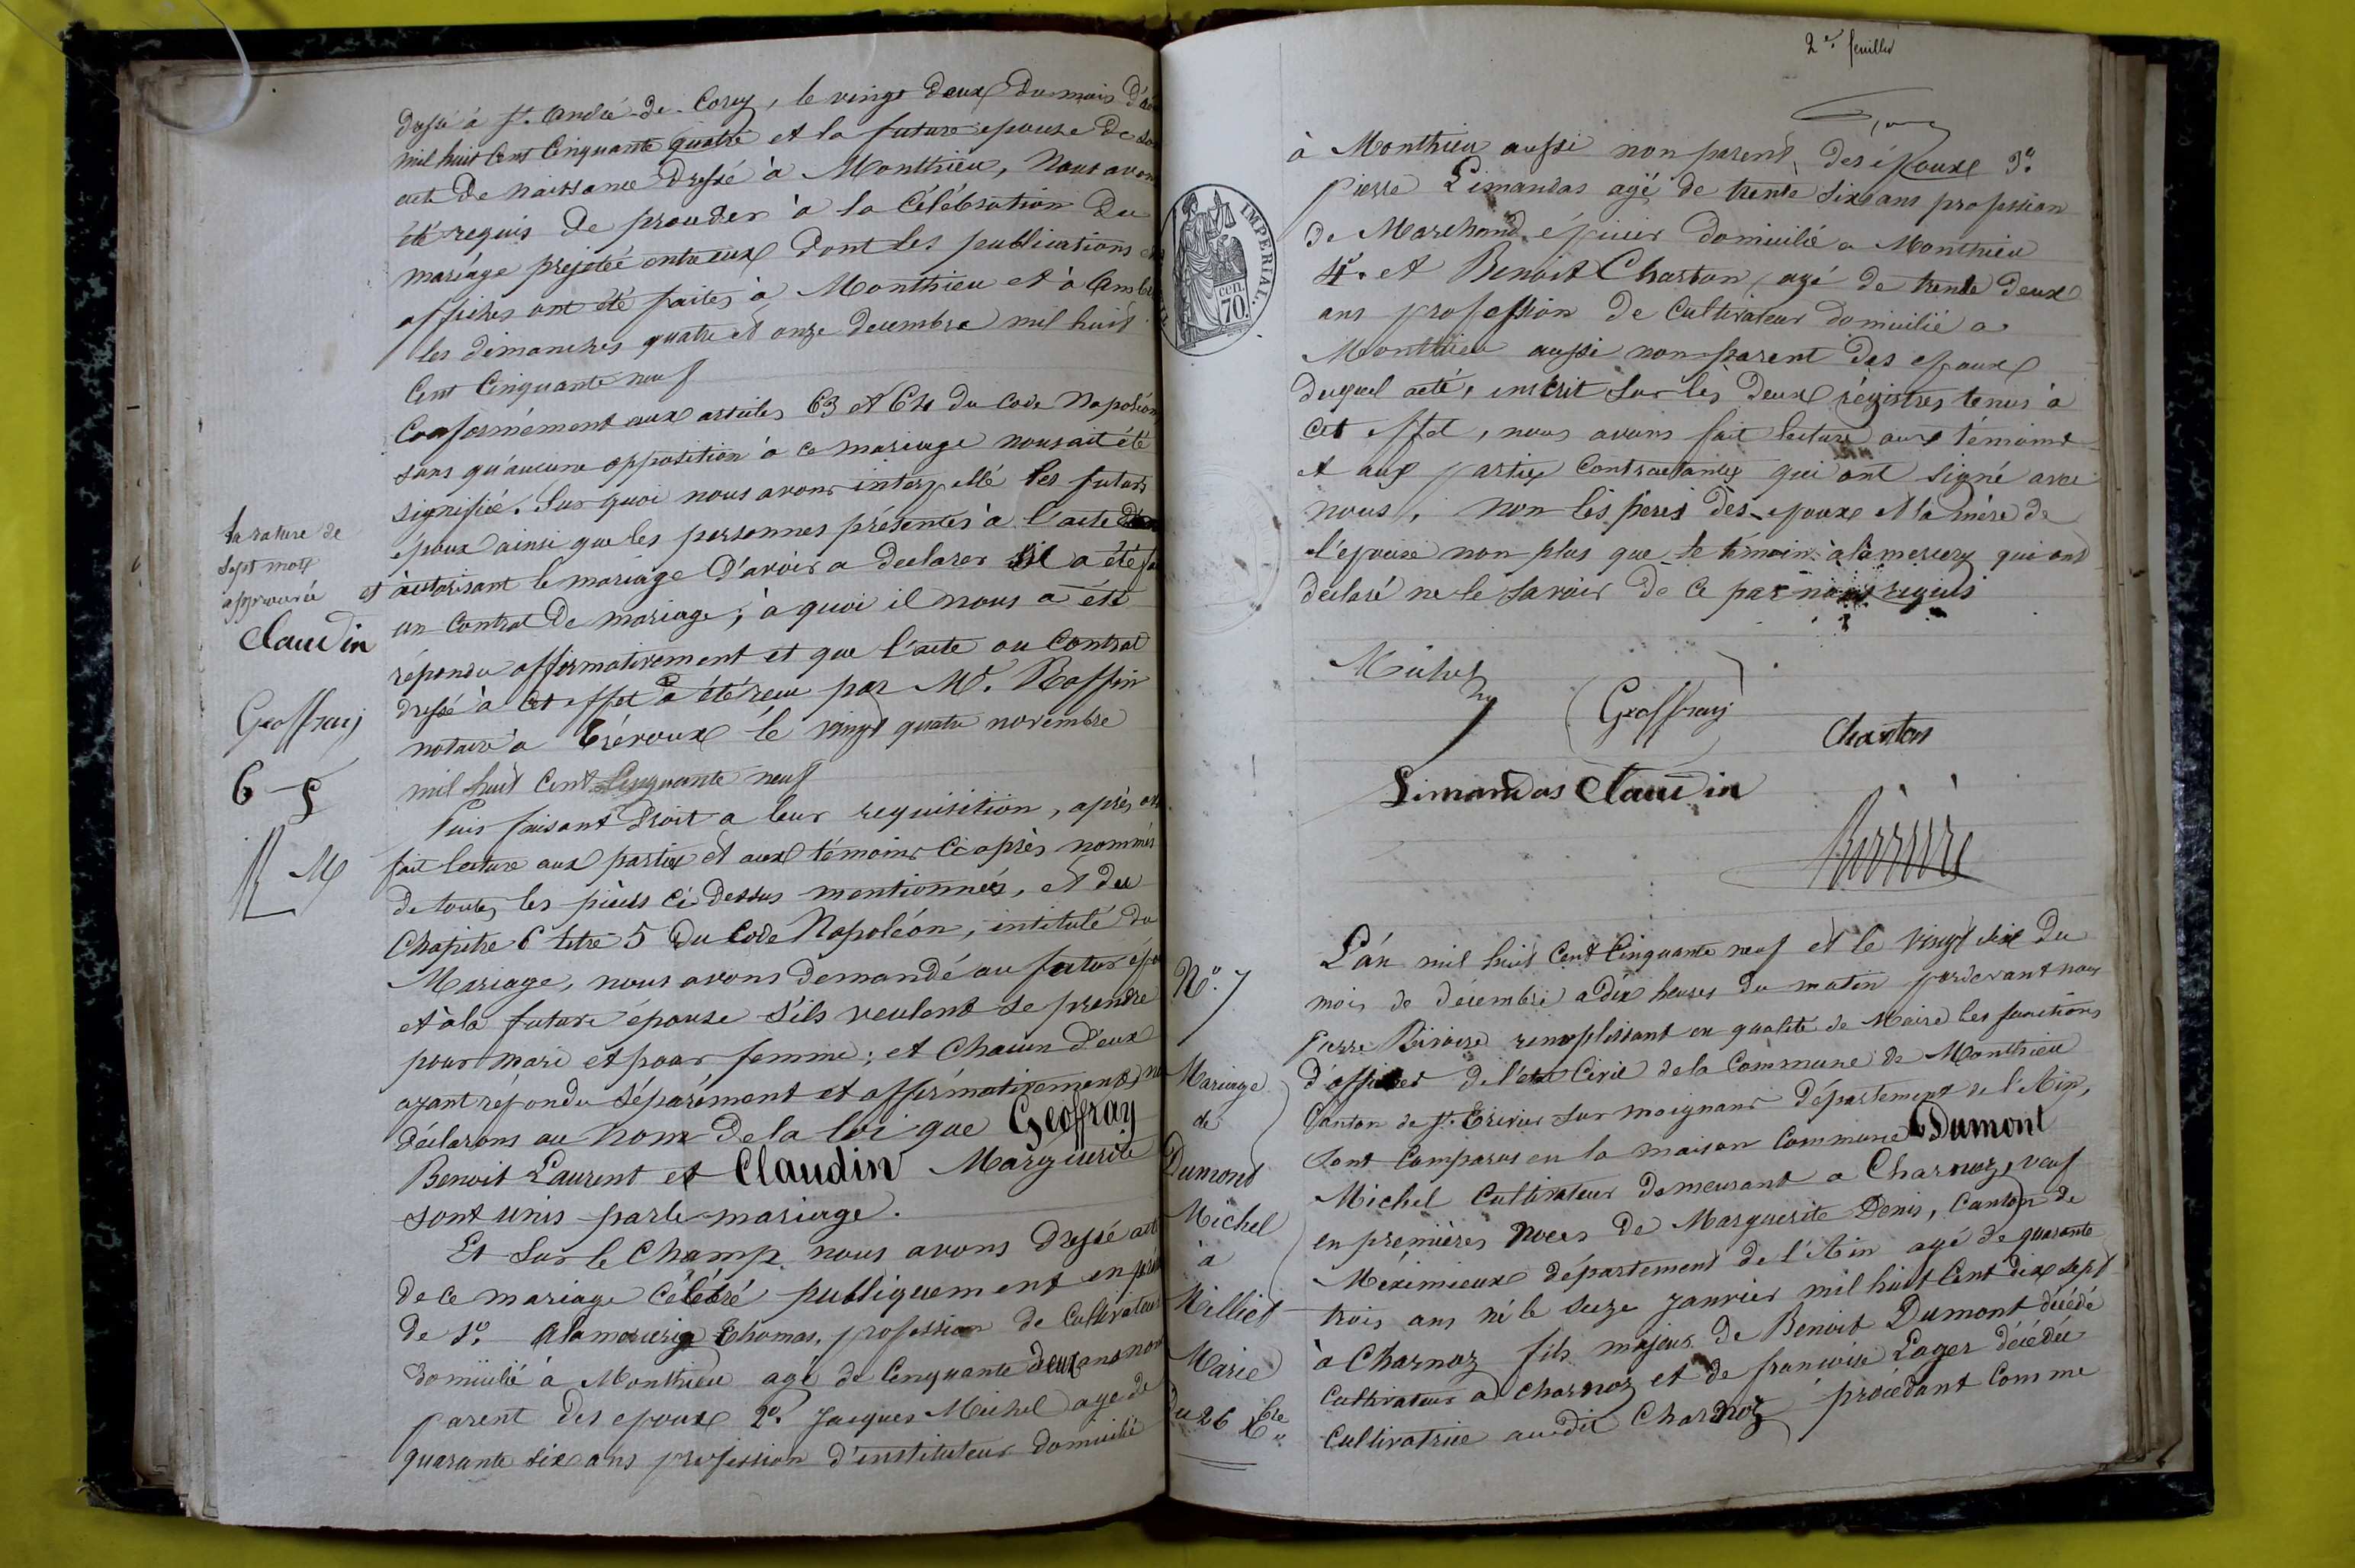 dressé à St. André-de-Corcy, le vingt deux du mois d'
mil huit Cent Cinquante quatre et la future epouse de
acte de naissance dressé à Monthieu, Nous avons
été requis de proceder à la Célébration du
mariage projetée entre eux dont les publications
affiches ont été faites à Monthieu et à
les dimanches quatre et onze decembre mil huit
Cent Cinquante neuf
Conformément aux articles 63 et 64 du Code Napoléon
sans qu'aucune opposition à ce mariage nous ait été
signifiée. Sur quoi nous avons interpellé les futurs
époux ainsi que les personnes présentes à l'acte
et autorisant le mariage d'avoir a declarer s'il a été
un Contrat de mariage, à quoi il nous a été
répondu affirmativement et que l'acte ou Contrat
dressé à cet effet a été reçu par Me. Raffin
notaire a Trévoux le vingt quatre novembre
mil huit Cent Cinquante neuf
Puis faisant droit a leur requisition, après
fait lecture aux parties et aux témoins Ci après nommés
de toutes les pièces ci dessus mentionnées, et du
Chapitre 6 titre 5 du Code Napoléon, intitulé du
Mariage, nous avons demandé au futur
et à la future épouse s'ils veulent se prendre
pour mari et pour femme; et Chacun d'eux
ayant répondu séparément et affirmativement,
déclarons au nom de la loi que Geoffray
Benoit Laurent et Claudin Marguerite
sont unis par le mariage.
Et sur le Champ nous avons dressé acte
de ce mariage Célébré publiquement en
de 1°. Alamercery Thomas, profession de Cultivateur
domicilié à Monthieu agé de Cinquante deux ans non
parent des epoux 2°. Jacques Michel agé de
quarante six ans profession d'instituteur domicilié
la rature de
sept mots
approuvée
Claudin
Geoffray
M
2e. feuillet
à Monthieu aussi non parent des époux 3°.
Pierre Limandas agé de trente six ans profession
de Marchand épicier domicilié a Monthieu
4°. et Benoit Charton, agé de trente deux
ans profession de Cultivateur domicilié a
Monthieu aussi non parent des epoux
duquel acte, inscrit sur les deux régistres tenus à
cet effet, nous avons fait lecture aux témoins
et aux parties Contractantes qui ont signé avec
nous, non les pères des epoux et la mère de
l'épouse non plus que le témoin alamercery qui ont
déclaré ne le savoir de ce par nous requis
IMPERIAL.
cen.
70.
Michel
Geoffray
Charton
Limandas Claudin
N°. 7
Mariage
de
Dumont
Michel
à
Milliet
Marie
Du 26 Xbre
L'an mil huit Cent Cinquante neuf et le vingt six du
mois de décembre a dix heures du matin pardevant nous
Pierre remplissant en qualité de Maire les fonctions
d'officier de l'etat Civil de la Commune de Monthieu
Canton de St. Trivier sur moignans département de l'Ain,
Sont Comparus en la maison Commune Dumont
Michel Cultivateur demeurant a Charnoz, veuf
en premières noces de Marguerite Denis, Canton de
Méximieux département de l'Ain agé de quarante
trois ans né le seize janvier mil huit Cent dix sept
à Charnoz fils majeur de Benoit Dumont décédé
Cultivateur a Charnoz et de françoise Lager décédée
Cultivatrice audit Charnoz procédant Comme